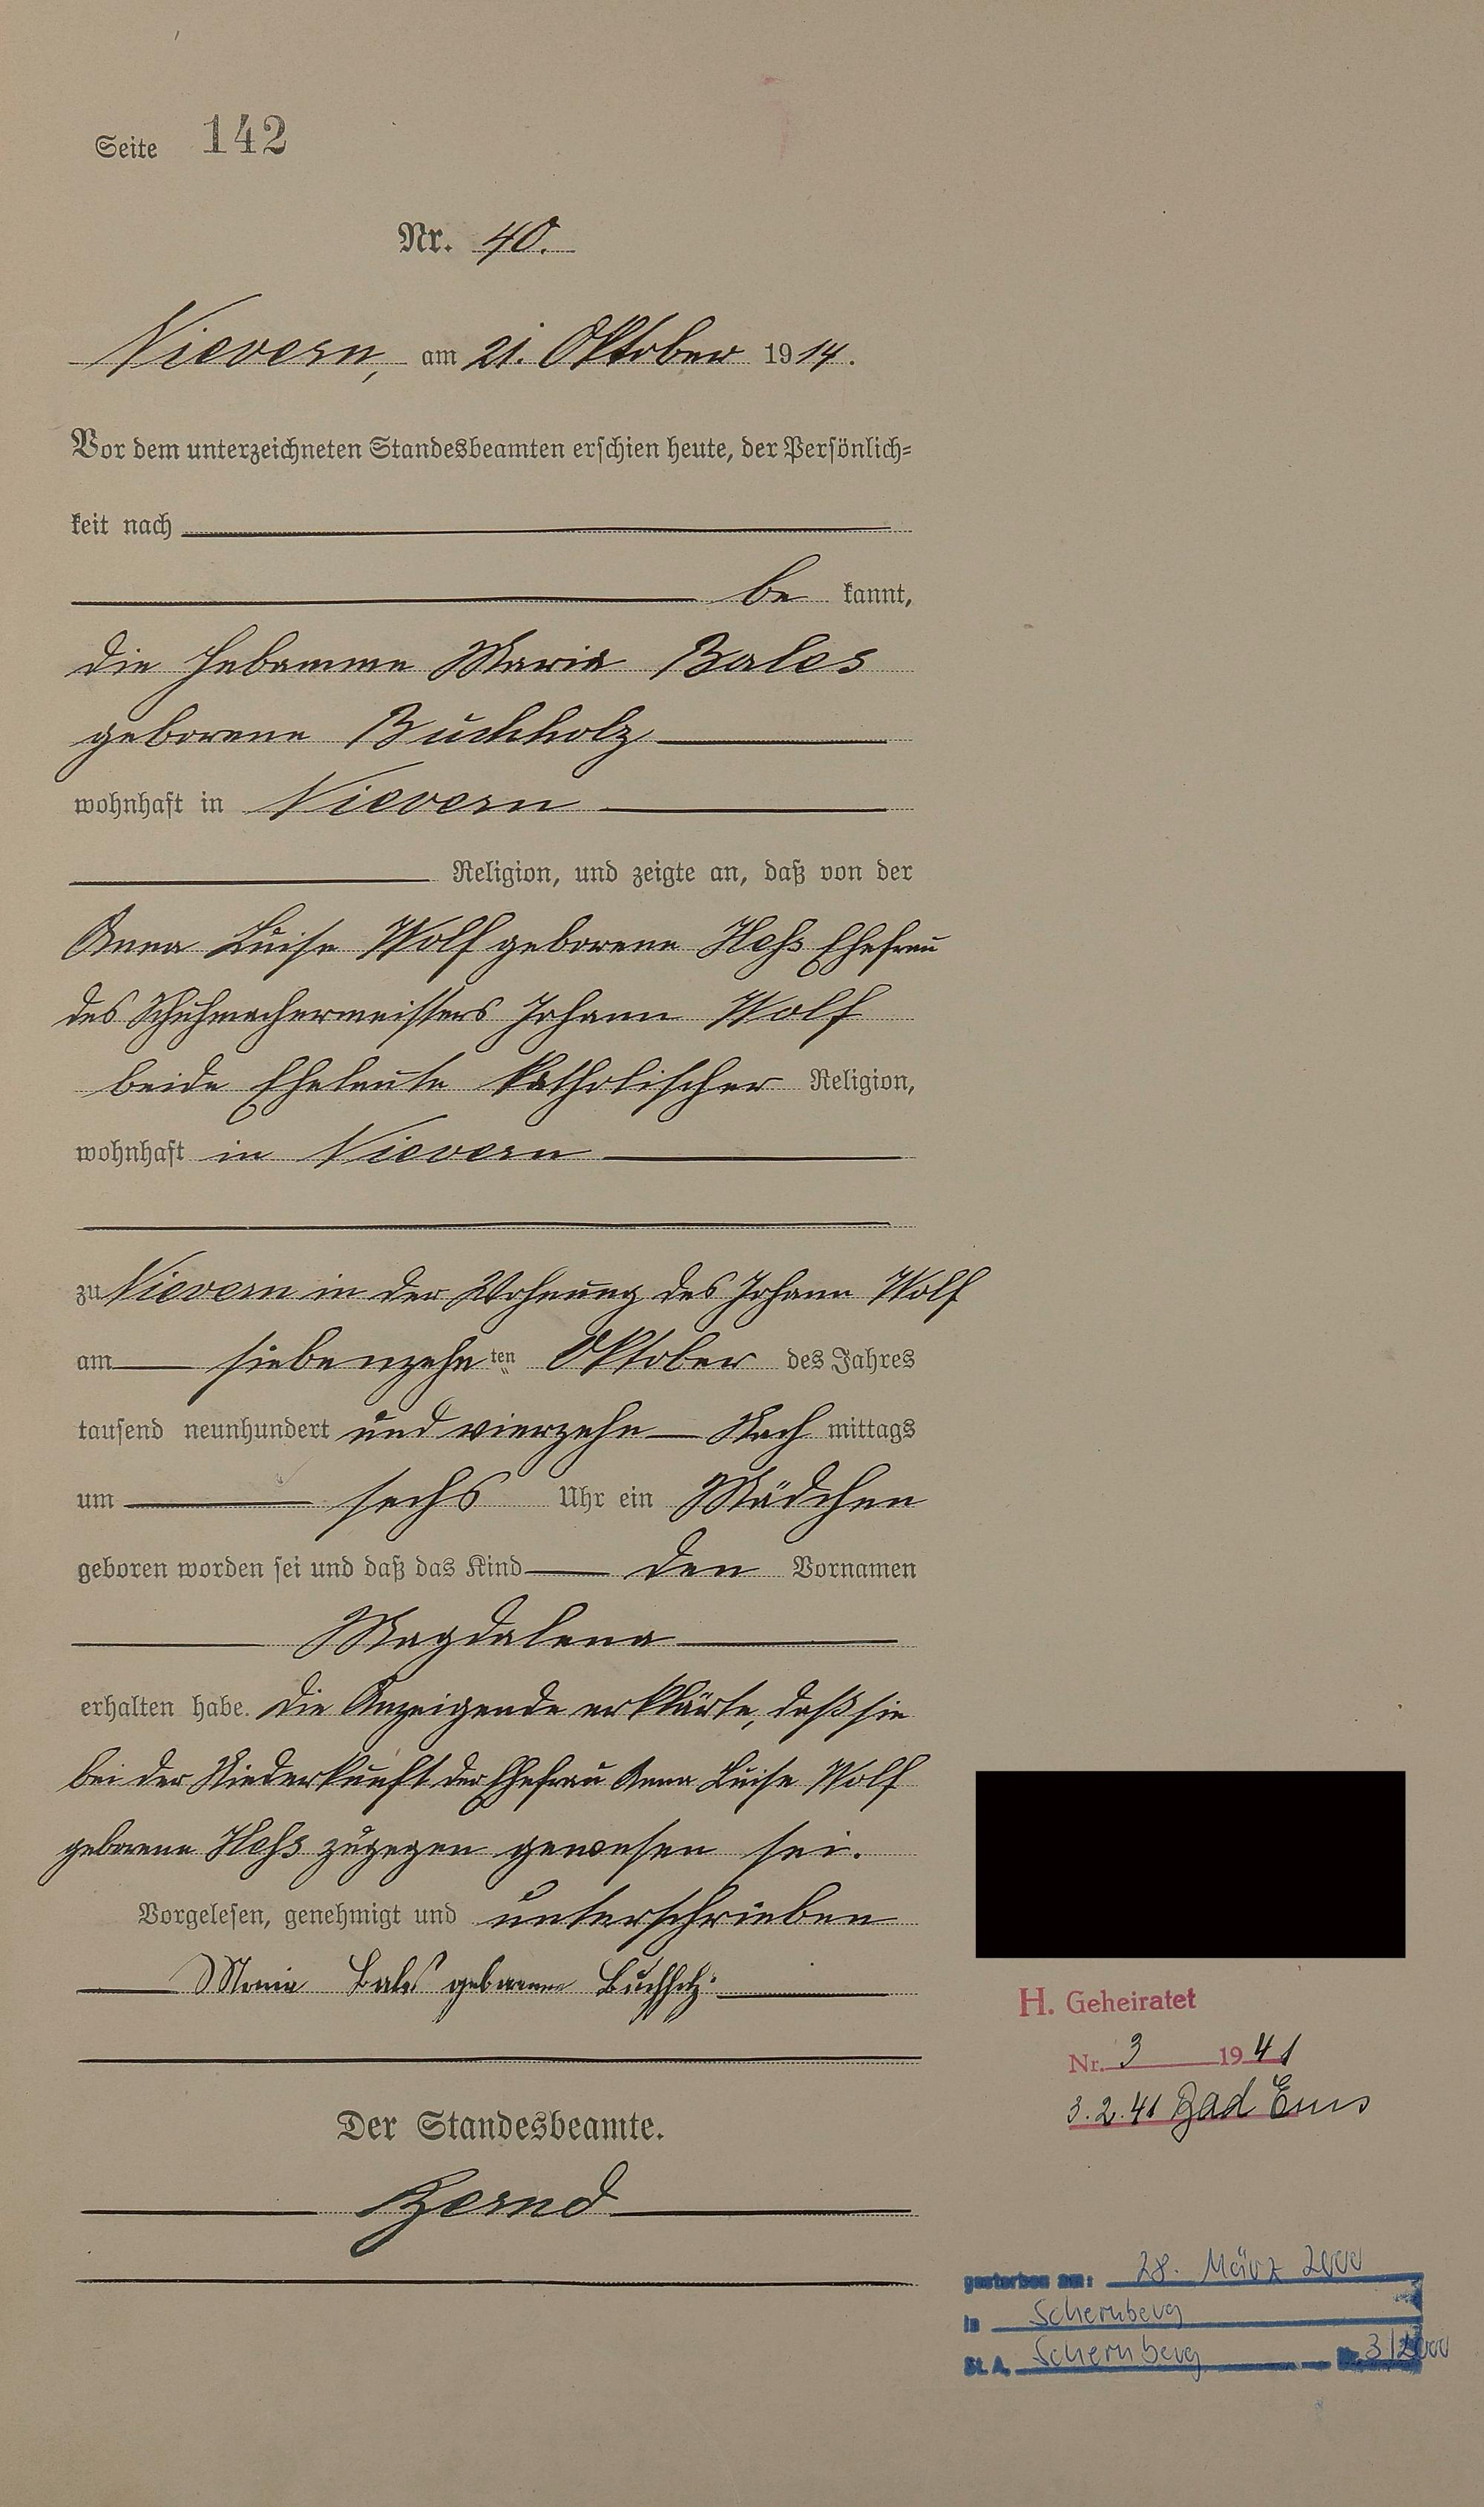 Seite 142
Nr. 40.
Nievern, am 21. Oktober 1914.
Vor dem unterzeichneten Standesbeamten erschien heute, der Persönlich-
keit nach
be kannt,
die Hebamme Maria Bales
geborene Buchholz
wohnhaft in Nievern
Religion, und zeigte an, daß von der
Anna Luise Wolf geborene Heß Ehefrau
des Schuhmachermeisters Johann Wolf
beide Eheleute katholischer Religion,
wohnhaft in Nievern
zu Nievern in der Wohnung des Johann Wolf
am siebenzehnten Oktober des Jahres
tausend neunhundert und vierzehn Nach mittags
um sechs Uhr ein Mädchen
geboren worden sei und daß das Kind den Vornamen
Magdalena
erhalten habe. Die Anzeigende erklärte, daß sie
bei der Niederkunft der Ehefrau Anna Luise Wolf
geborene Heß zugegen gewesen sei.
Vorgelesen, genehmigt und unterschrieben
Maria Bales geborene Buchholz
Der Standesbeamte.
Bernd
H. Geheiratet
Nr. 3 1941
3.2.41 Bad Ems
gestorben am: 28. März 2000
in Schernberg
St. A. Schernberg Nr. 3/2000